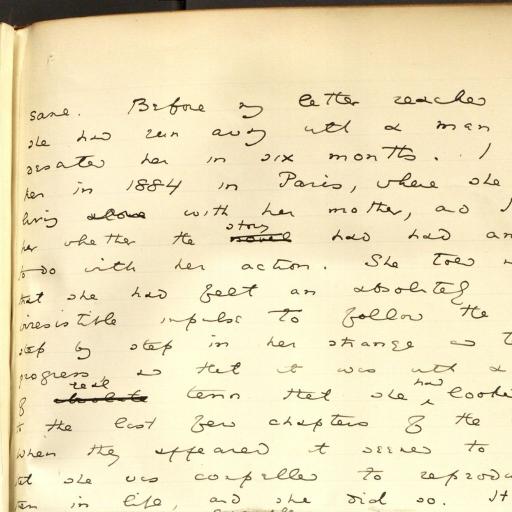 same. Before my letter reached
she had run away with a man
deserted her in six months. I
her in 1884 in Paris, where she
living alone with her mother, and I
story
her whether the novel had had an
to do with her action. She told m
that she had felt an absolutely
irresistible impulse to follow the
step by step in her strange
progress, and that it was with a
real had
of absolute terror that she looke
to the last few chapters of the
When they appeared it seemed to
that she was compelled to reprodu
them in life, and she did so. It